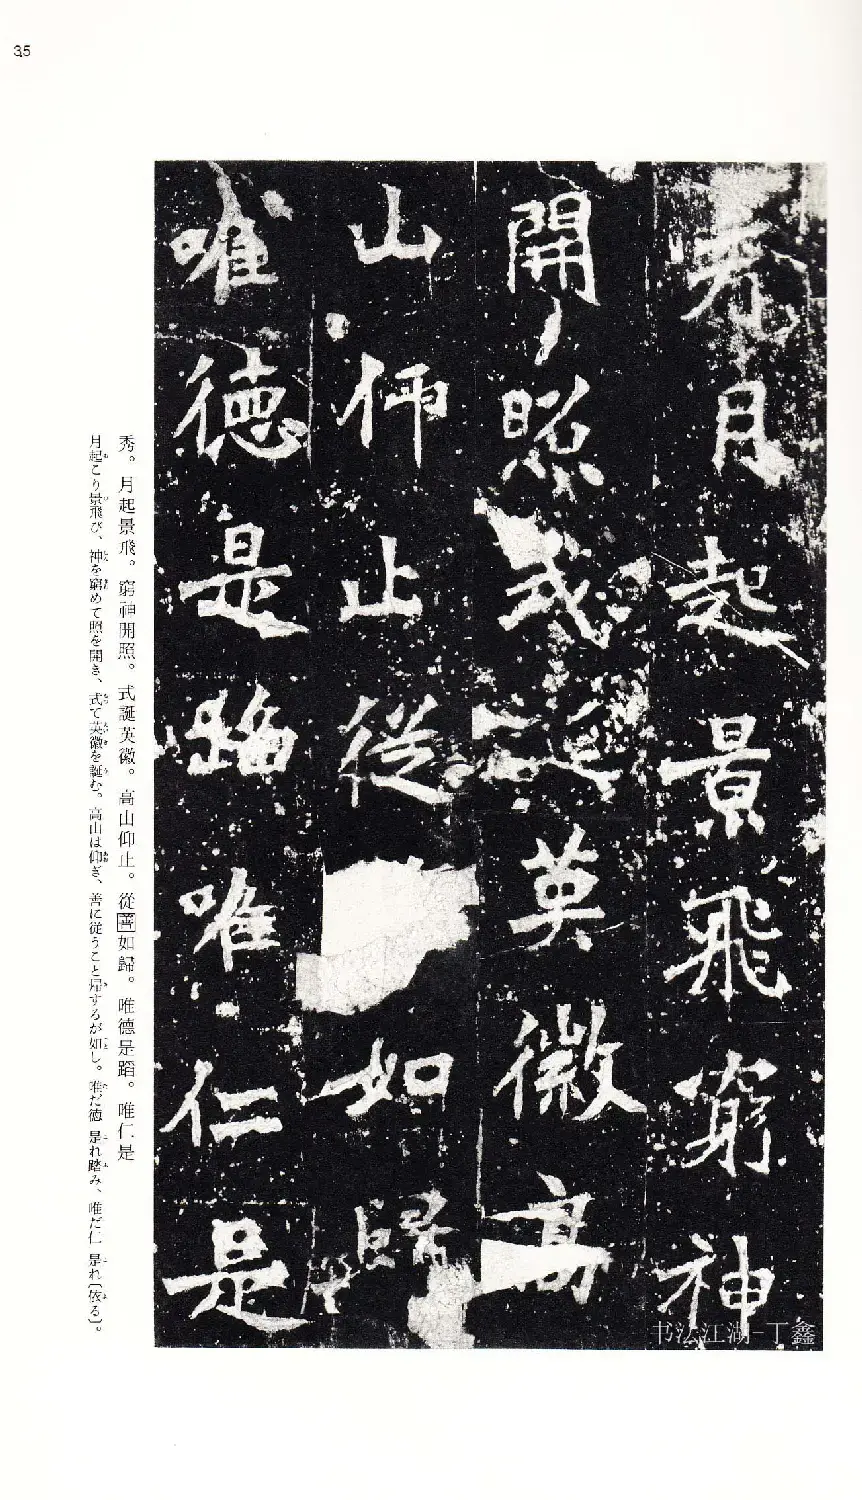 35
秀月起景飛窮神
開照式誕英徽高
山仰止從如歸
唯德是蹈唯仁是
秀。月起景飛。窮神開照。式誕英徽。高山仰止。從善如歸。唯德是蹈。唯仁是
月起こり景飛び、神を窮めて照を開き、式て英徽を誕む。高山は仰ぎ、善に従うこと帰するが如し。唯だ徳 是れ踏み、唯だ仁 是れ〔依る〕。
书法江湖-丁鑫